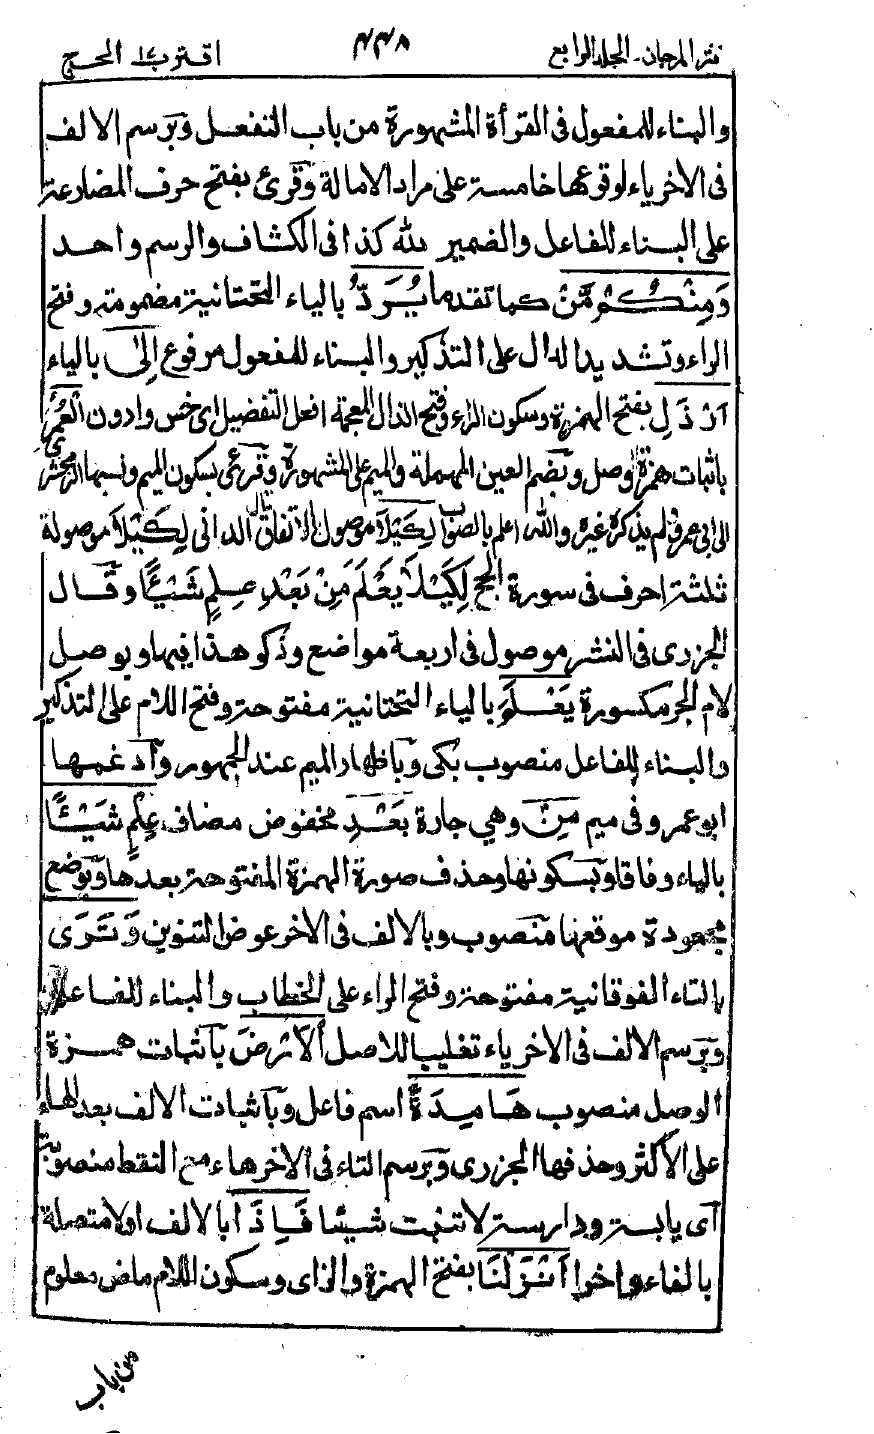 نثر المرجان - الجلد الرابع ۴۴۸ اقترب ١٧ الحج
والبناء للمفعول فى القرأة المشهورة من باب التفعل وبرسم الالف
فى الاخر ياء لوقوعها خامسة على مراد الامالة وقرئ بفتح حرف المضارعة
على البناء للفاعل والضمير لله كذا فى الكشاف والرسم واحد
وَمِنْكُمْ مَّنْ كما تقدما يُرَدُّ بالياء التحتانية مضمومة وفتح
الراء وتشديد الدال على التذكير والبناء للمفعول مرفوع اِلٰى بالياء
اَرْذَلِ بفتح الهمزة وسكون الراء وفتح الذال المعجمة افعل التفضيل اى اخس وادون الْعُمُرِ
باثبات همزة الوصل وبضم العين المهملة والميم على المشهورة وقرئ بسكون الميم ونسبها الزمخشرى
الى ابى عمرو ولم يذكره غيره والله اعلم بالصواب لِكَيْلَا موصول بالاتفاق قال الدانى لِكَيْلَا موصولة
ثلثة احرف فى سورة الحج لِكَيْلَا يَعْلَمَ مِنْ بَعْدِ عِلْمٍ شَيْـًٔا وقال
الجزرى فى النشر موصول فى اربعة مواضع وذكر هذا فيها وبوصل
لام الجر مكسورة يَعْلَمَ بالياء التحتانية مفتوحة وفتح اللام على التذكير
والبناء للفاعل منصوب بكى وباظهار الميم عند الجمهور وادغمها
ابو عمرو فى ميم مِنْ وهى جارة بَعْدِ مخفوض مضاف عِلْمٍ شَيْـًٔا
بالياء وفاقا وبسكونها وحذف صورة الهمزة المفتوحة بعدها وبوضع
مجعودة موقعها منصوب وبالالف فى الاخر عوض التنوين وَتَرَى
بالتاء الفوقانية مفتوحة وفتح الراء على الخطاب والبناء للفاعل
وبرسم الالف فى الاخر ياء تغليبا للاصل الْاَرْضَ باثبات همزة
الوصل منصوب هَامِدَةً اسم فاعل وباثبات الالف بعد الهاء
على الاكثر وحذفها الجزرى وبرسم التاء فى الاخر هاء مع النقط منصوبة
اى يابسة ودارسة لا تنبت شيئا فَاِذَا بالالف اولا متصلة
بالفاء واخرا اَنْزَلْنَا بفتح الهمزة والزاى وسكون اللام ماض معلوم
من باب